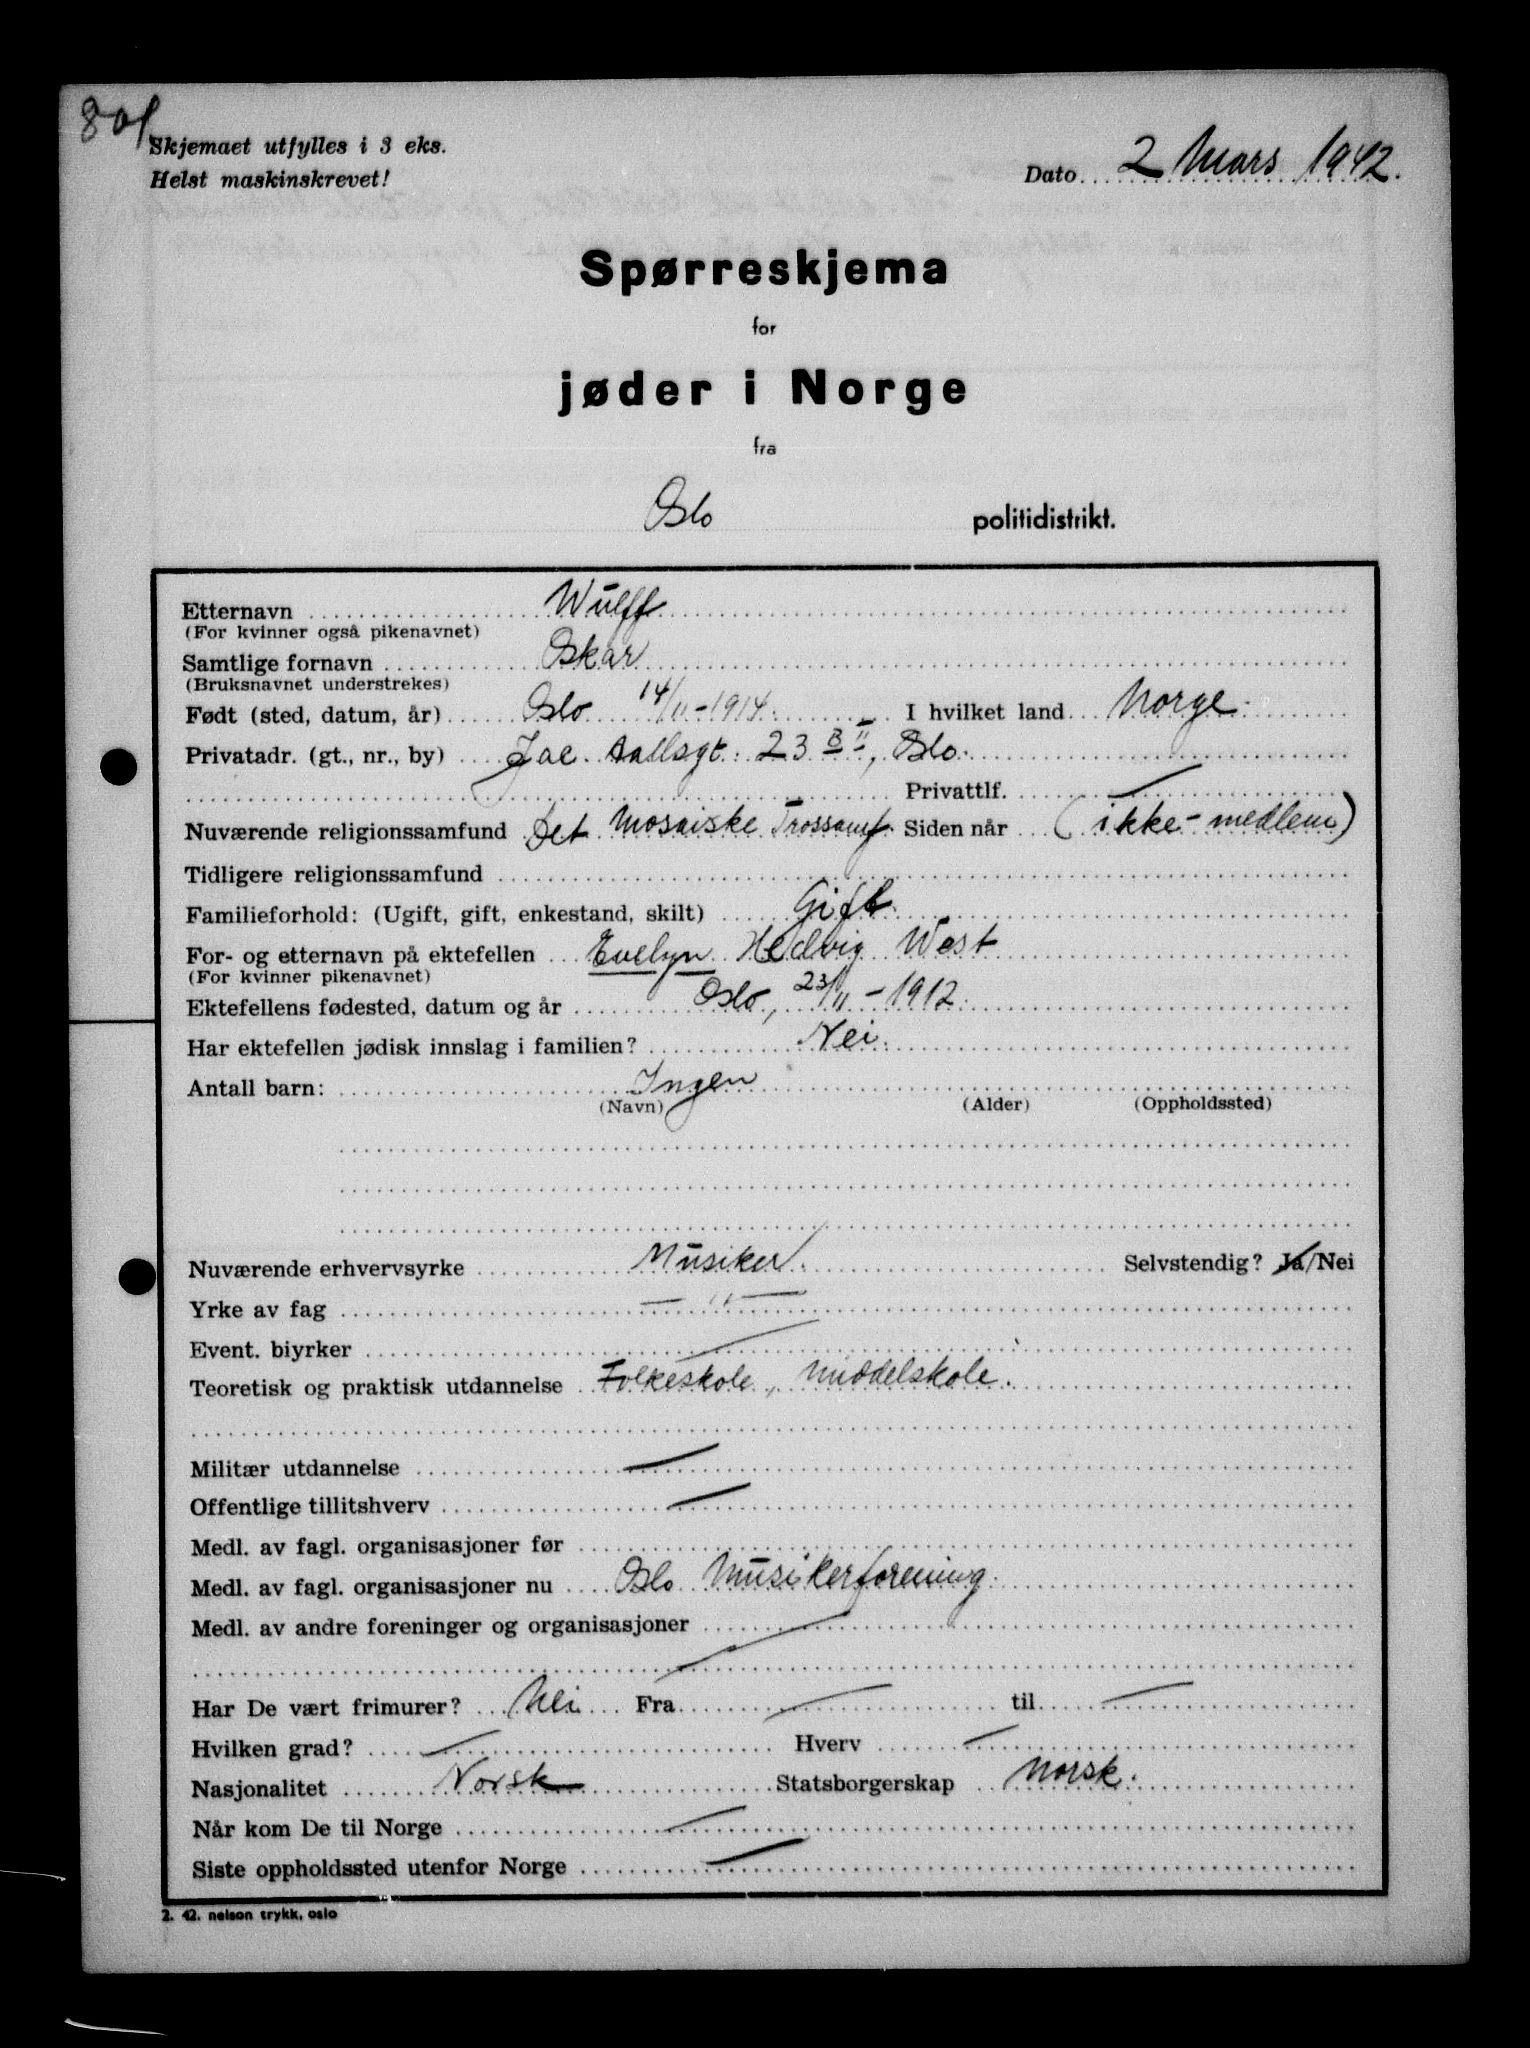 801
Skjemaet utfylles i 3 eks.
Helst maskinskrevet!
Dato 2 Mars 1942.
Spørreskjema
for
jøder i Norge
fra
Oslo politidistrikt.
Etternavn Wulff
(For kvinner også pikenavnet)
Samtlige fornavn Oskar
(Bruksnavnet understrekes)
Født (sted, datum, år) Oslo 14/11-1914. I hvilket land Norge.
Privatadr. (gt., nr., by) Jac. Aallsgt. 23 B II, Oslo.
Privattlf. —
Nuværende religionssamfund Det Mosaiske Trossamf. Siden når (ikke-medlem)
Tidligere religionssamfund
Familieforhold: (Ugift, gift, enkestand, skilt) Gift.
For- og etternavn på ektefellen Evelyn Hedvig West
(For kvinner pikenavnet)
Ektefellens fødested, datum og år Oslo, 23/11-1912.
Har ektefellen jødisk innslag i familien? Nei.
Antall barn: Ingen
(Navn) (Alder) (Oppholdssted)
Nuværende erhvervsyrke Musiker. Selvstendig? Ja/Nei
Yrke av fag — " —
Event. biyrker —
Teoretisk og praktisk utdannelse Folkeskole, Middelskole.
Militær utdannelse —
Offentlige tillitshverv —
Medl. av fagl. organisasjoner før
Medl. av fagl. organisasjoner nu Oslo Musikerforening.
Medl. av andre foreninger og organisasjoner —
Har De vært frimurer? Nei Fra — til —
Hvilken grad? — Hverv —
Nasjonalitet Norsk Statsborgerskap Norsk.
Når kom De til Norge —
Siste oppholdssted utenfor Norge —
2. 42. nelson trykk, oslo